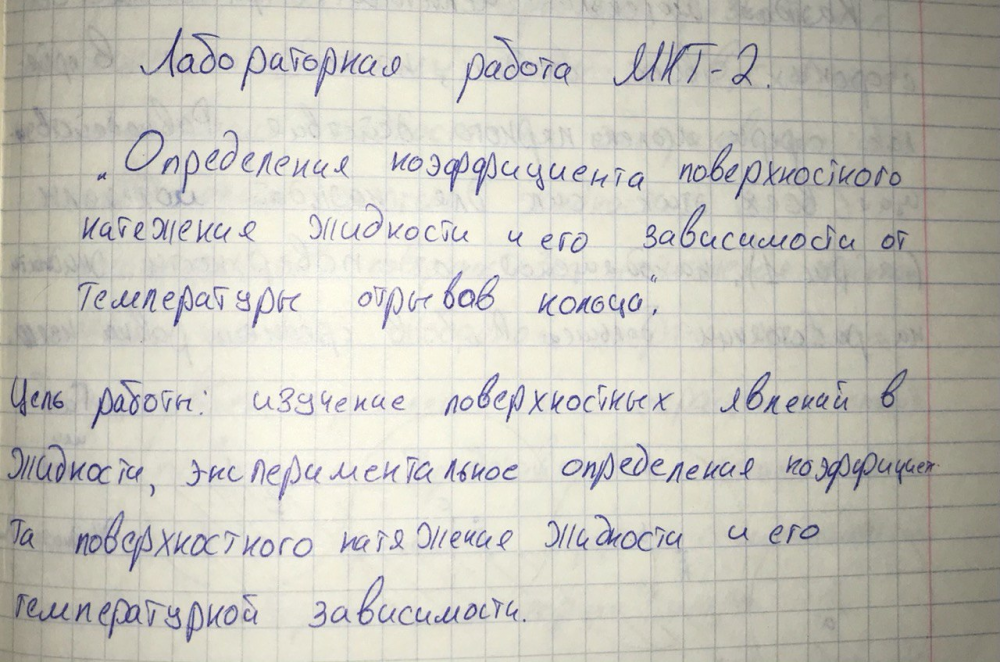 Лабораторная работа МКТ-2.
„Определения коэффициента поверхностного
натежения жидкости и его зависимости от
температуры отрывов кольца".
Цель работы: изучение поверхностных явлений в
жидкости, экспериментальное определения коэффициен-
та поверхностного натяжения жидкости и его
температурной зависимости.